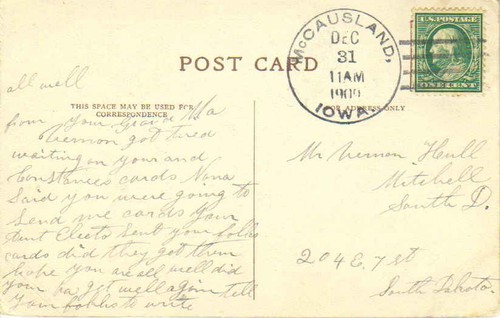 McCAUSLAND,
DEC
31
11AM
1909
IOWA.
U.S. POSTAGE
ONE CENT
POST CARD
THIS SPACE MAY BE USED FOR
CORRESPONDENCE
FOR ADDRESS ONLY
all well
from your Grand Ma
Vernon got tired
waiting on your and
Constances cards Nona
Said you were going to
Send me cards your
Aunt Cleeta Sent your folks
cards did they get them
hope you are all well did
your pa get well again tell
your folks to write
Mr Vernon Hull
Mitchell
South D.
204 E. 7 st
South Dakota